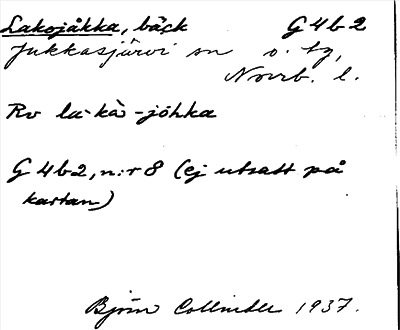 Lakojåkka, bäck G 4 b 2
Jukkasjärvi sn o. tg,
Norrb. l.
Rv la-kà-jòhka
G 4 b 2, n:r 8 (ej utsatt på
kartan)
Björn Collinder 1937.